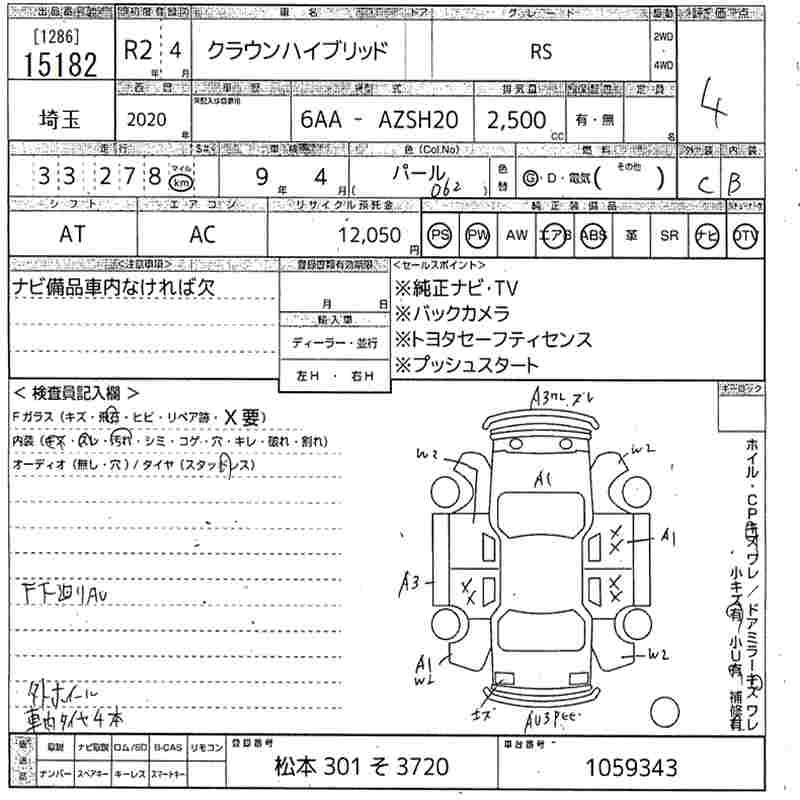 出品番号 初度登録 車名 ドア グレード 駆動 評価点
[1286]
15182 R2年 4月 クラウンハイブリッド RS 2WD・4WD 4
西暦 車歴 型式 排気量 保証書 定員
埼玉 2020年 6AA - AZSH20 2,500cc 有・無 名
走行 車検 色(Col.No) 燃料 外装 内装
33278 マイル km 9年 4月 パール 062 色替 G・D・電気( その他 ) C B
シフト エアコン リサイクル預託金 純正装備品
AT AC 12,050円 PS PW AW エアB ABS 革 SR ナビ TV
<注意事項> 登録書類有効期限 <セールスポイント>
ナビ備品車内なければ欠 月 日 ※純正ナビ・TV
輸入車 ※バックカメラ
ディーラー・並行 ※トヨタセーフティセンス
左H・右H ※プッシュスタート
< 検査員記入欄 > キーロック
Fガラス(キズ・飛石・ヒビ・リペア跡・X要)
内装(キズ・スレ・汚れ・シミ・コゲ・穴・キレ・破れ・割れ)
オーディオ(無し・穴)/タイヤ(スタッドレス)
A3 ズレ
W2 W2
A1
XX A1
A3 XX XX
A1 W2 W2
キズ AU3
ホイル・CPキズワレ/ドアミラーキズワレ
小キズ有 小U有 補修有
下廻りAU
外ホイル
車内タイヤ4本
取説 ナビ取説 ロム/SD B-CAS リモコン 登録番号 車台番号
ナンバー スペアキー キーレス スマートキー 松本 301 そ 3720 1059343